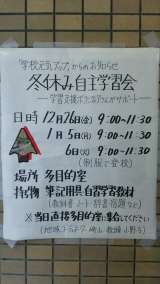 「学校元気アップ」からのお知らせ
冬休み自主学習会
―学習支援ボランティアがサポート―
日時 12月26日(金) 9:00~11:30
1月5日(月) 9:00~11:30
6日(火) 9:00~11:30
(制服で登校)
場所 多目的室
持ち物 筆記用具、自習学習教材
(教科書・ノート・辞書・宿題など)
※当日直接多目的室に集合してください
(地域コーディネーター 教頭 小野寺)